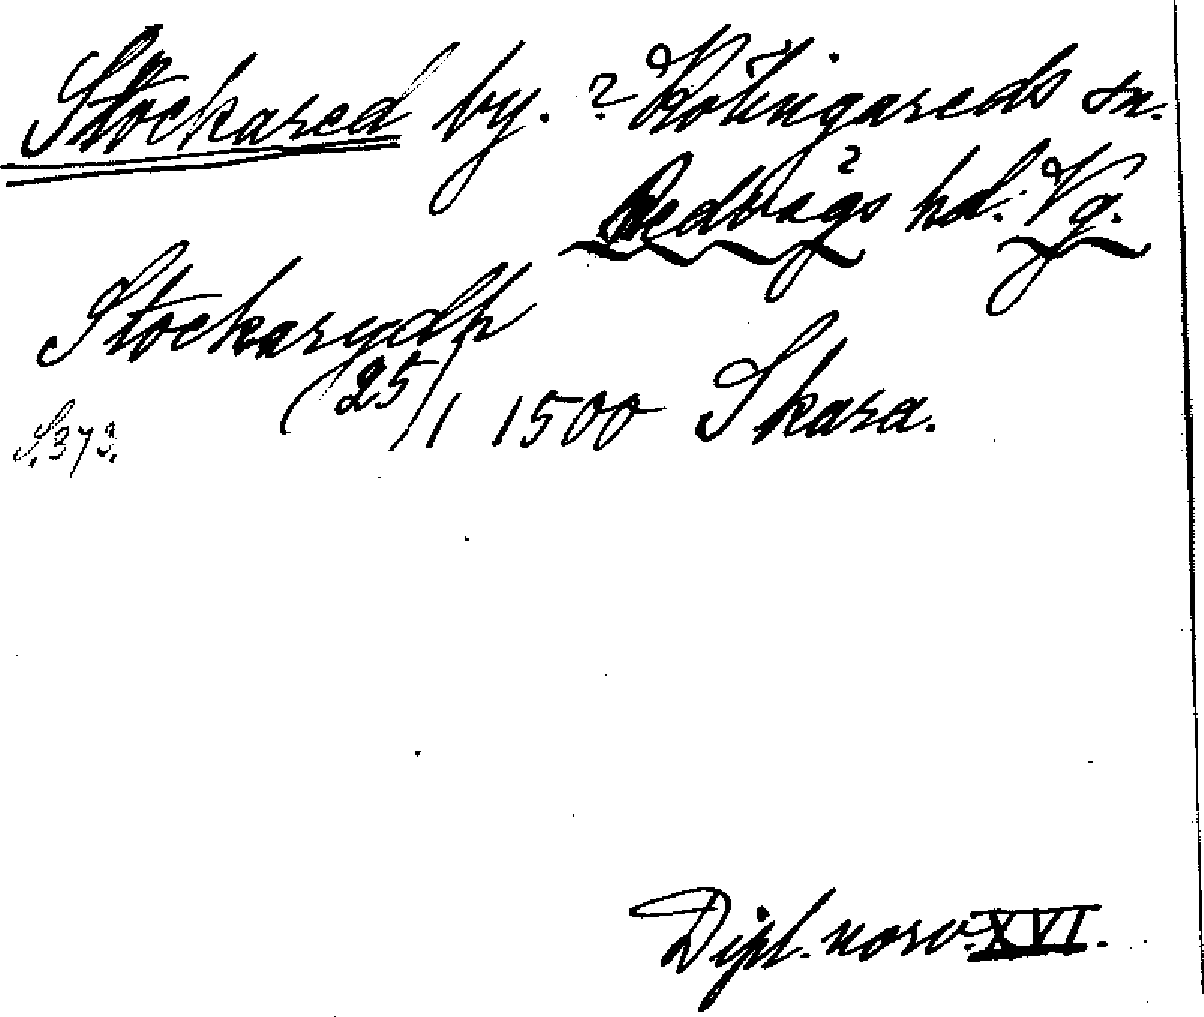 Stockared by. ? Kölingareds sn.
Redvägs hd. Vg.
Stockarydh
(25/1 1500 Skara.
S. 373.
Dipl. norv. XVI.